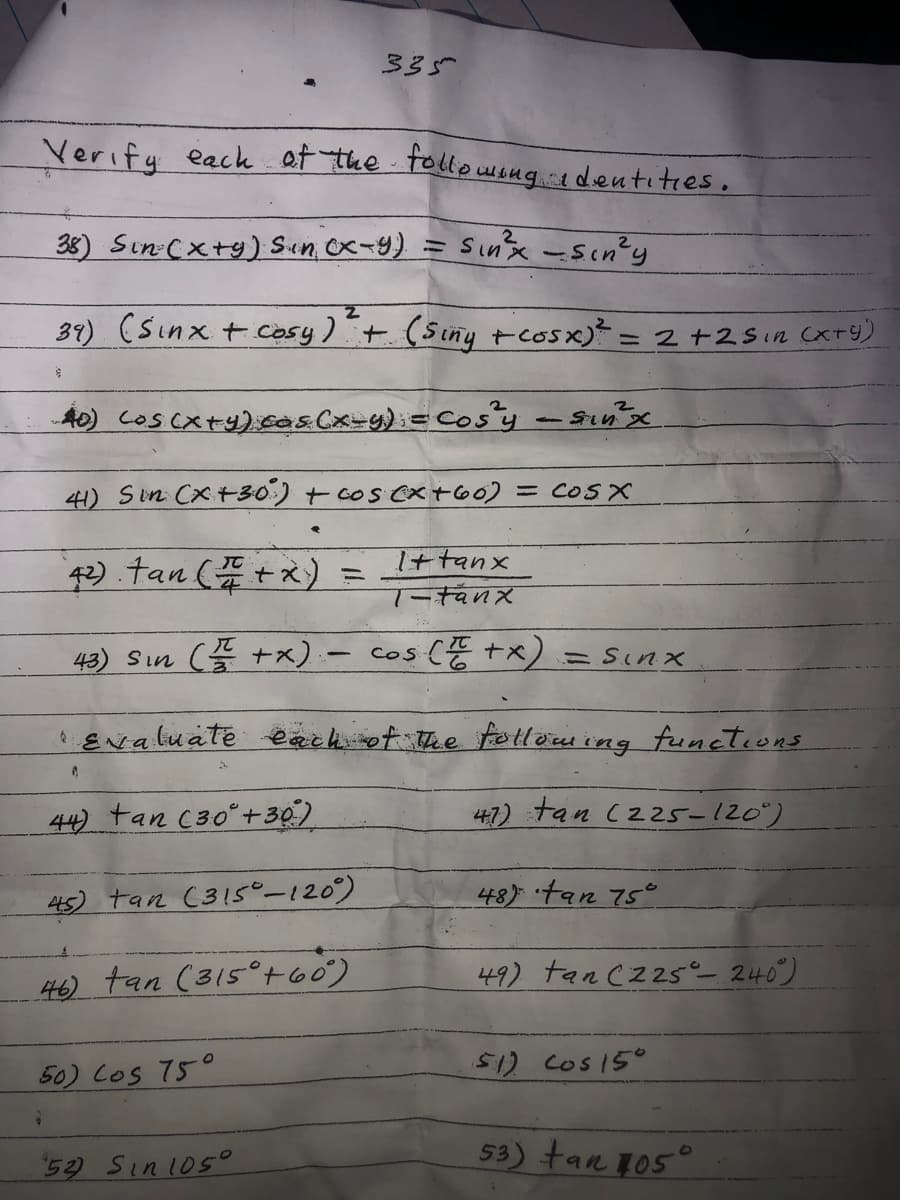 335
Verify each of the following identities.
38) Sin(x+y) Sin(x-y) = Sin²x - Sin²y
39) (Sinx + cosy)² + (Siny + cosx)² = 2 + 2 Sin (x+y)
40) Cos(x+y) cos(x-y) = Cos²y - Sin²x
41) Sin (x+30°) + cos (x+60) = cosx
42) tan (π/4 + x) = 1+tanx / 1-tanx
43) Sin (π/3 + x) - cos (π/6 + x) = Sinx
Evaluate each of the following functions
44) tan (30°+30°) 47) tan (225-120°)
45) tan (315°-120°) 48) tan 75°
46) tan (315°+60°) 49) tan (225°-240°)
50) Cos 75° 51) cos 15°
52) Sin 105° 53) tan 105°